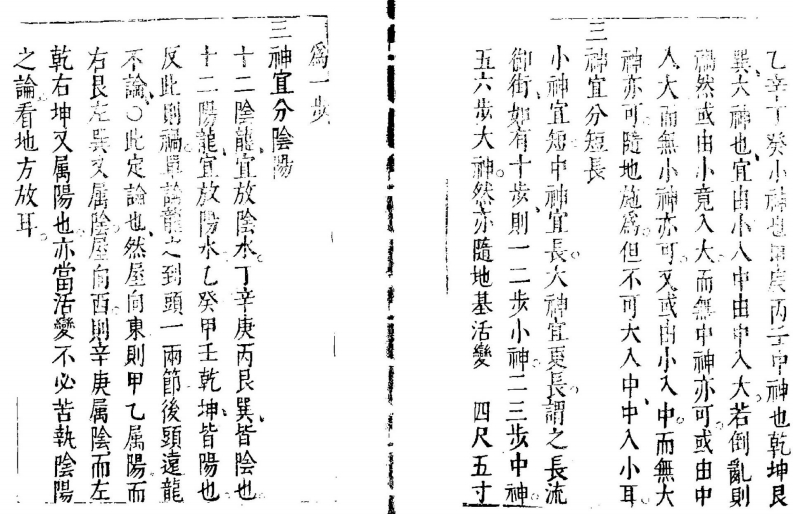 乙辛丁癸小神也甲庚丙壬中神也乾坤艮
巽大神也宜由小入中由中入大若倒亂則
禍然或由小竟入大而無中神亦可或由中
入大而無小神亦可又或由小入中而無大
神亦可隨地施為但不可大入中中入小耳
三神宜分短長
小神宜短中神宜長大神宜更長謂之長流
御街如有十步則一二步小神二三步中神
五六步大神然亦隨地基活變　四尺五寸
為一步
三神宜分陰陽
十二陰龍宜放陰水丁辛庚丙艮巽皆陰也
十二陽龍宜放陽水乙癸甲壬乾坤皆陽也
反此則禍單論龍之到頭一兩節後頭遠龍
不論○此定論也然屋向東則甲乙属陽而
右艮左巽又属陰屋向西則辛庚属陰而左
乾右坤又属陽也亦當活變不必苦執陰陽
之論看地方放耳